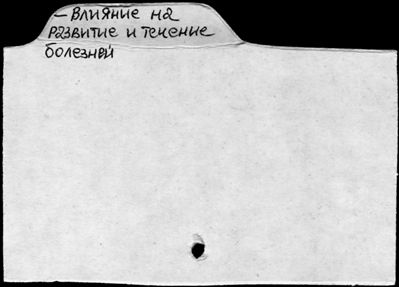 — Влияние на
развитие и течение
болезней